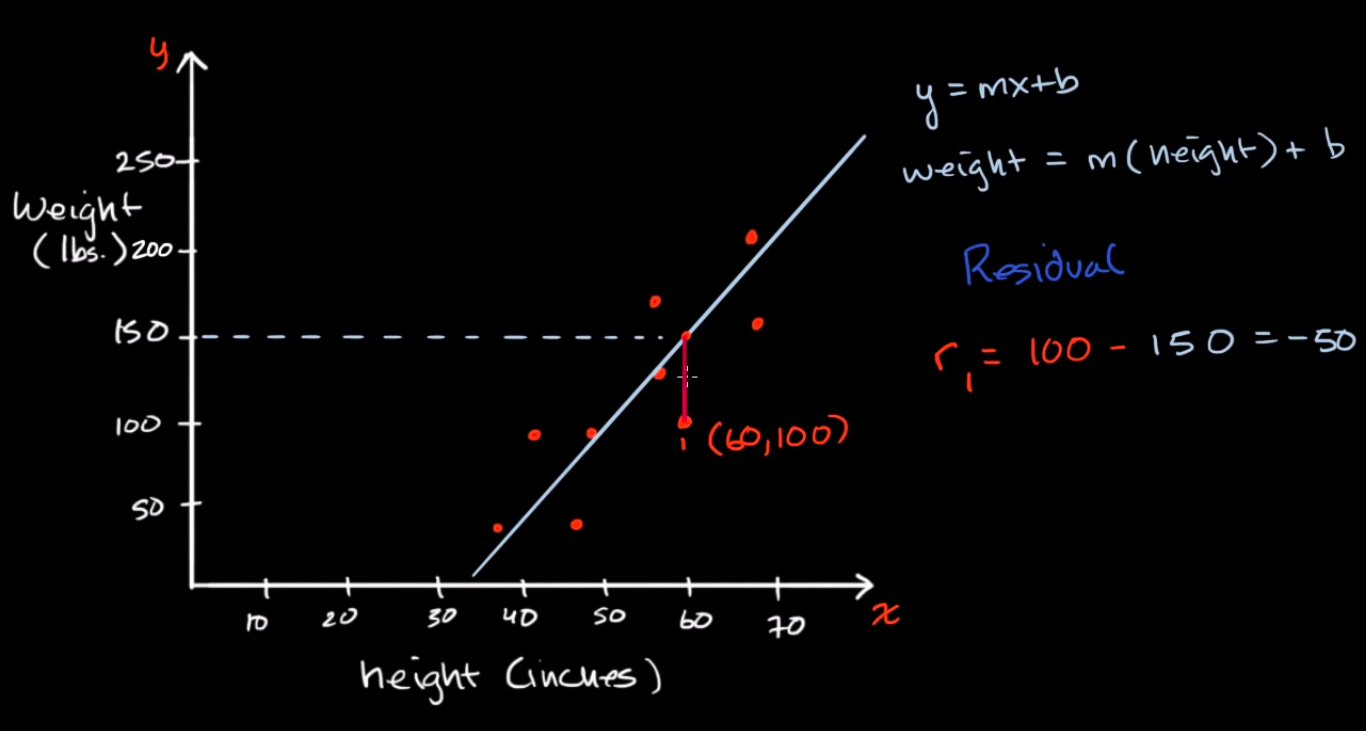 y
250
Weight
(lbs.) 200
150
100
50
10 20 30 40 50 60 70
x
height (inches)
i (60,100)
y = mx+b
weight = m(height) + b
Residual
r₁ = 100 - 150 = -50